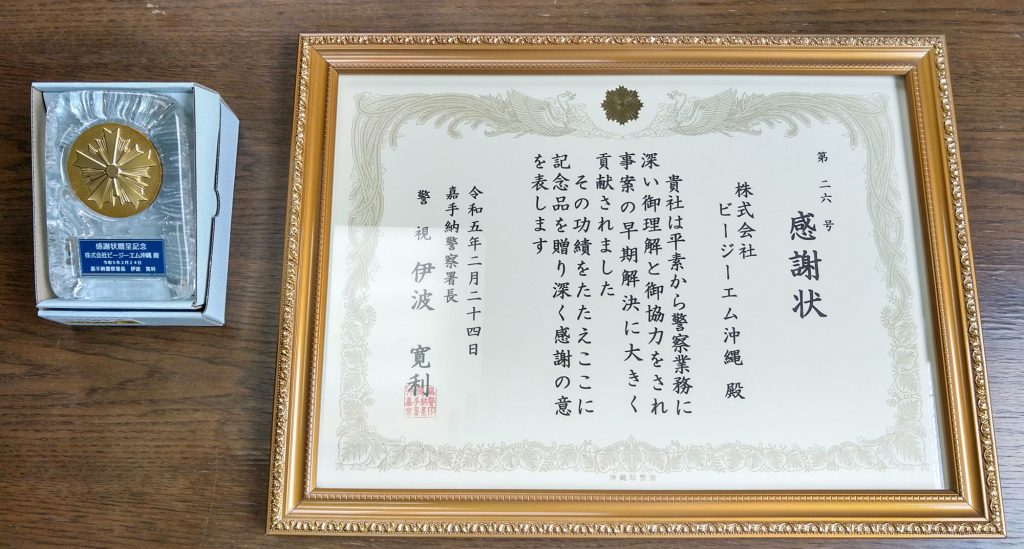 第二六号
感謝状
株式会社
ビージーエム沖縄 殿
貴社は平素から警察業務に
深い御理解と御協力をされ
事案の早期解決に大きく
貢献されました
その功績をたたえここに
記念品を贈り深く感謝の意
を表します
令和五年二月二十四日
嘉手納警察署長
警視 伊波 寛利
沖縄県警察
感謝状贈呈記念
株式会社ビージーエム沖縄 殿
令和5年2月24日
嘉手納警察署長 伊波 寛利